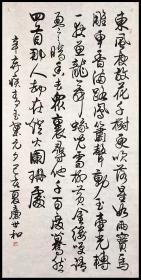 東風夜放花千樹更吹落星如雨寶馬
雕車香滿路鳳簫聲動玉壺光轉
一夜魚龍舞蛾兒雪柳黃金縷笑語
盈盈暗香去衆裏尋他千百度驀然
回首那人却在燈火闌珊處
辛棄疾青玉案元夕夏世和